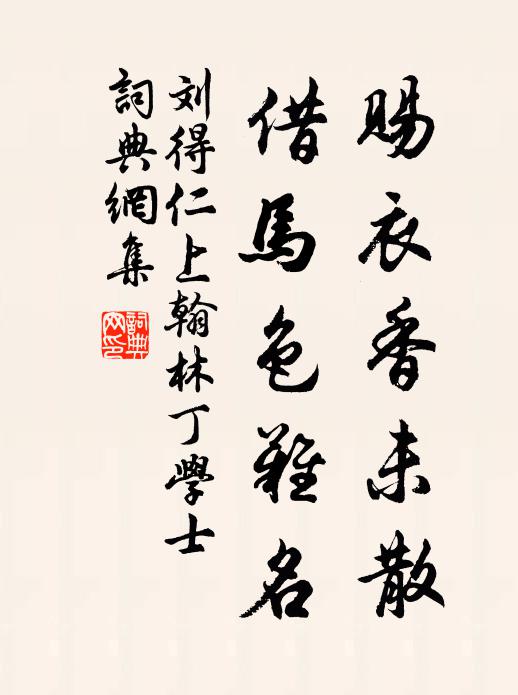 賜衣香未散
借馬色難名
刘得仁上翰林丁學士
詞典網集
詞典網印